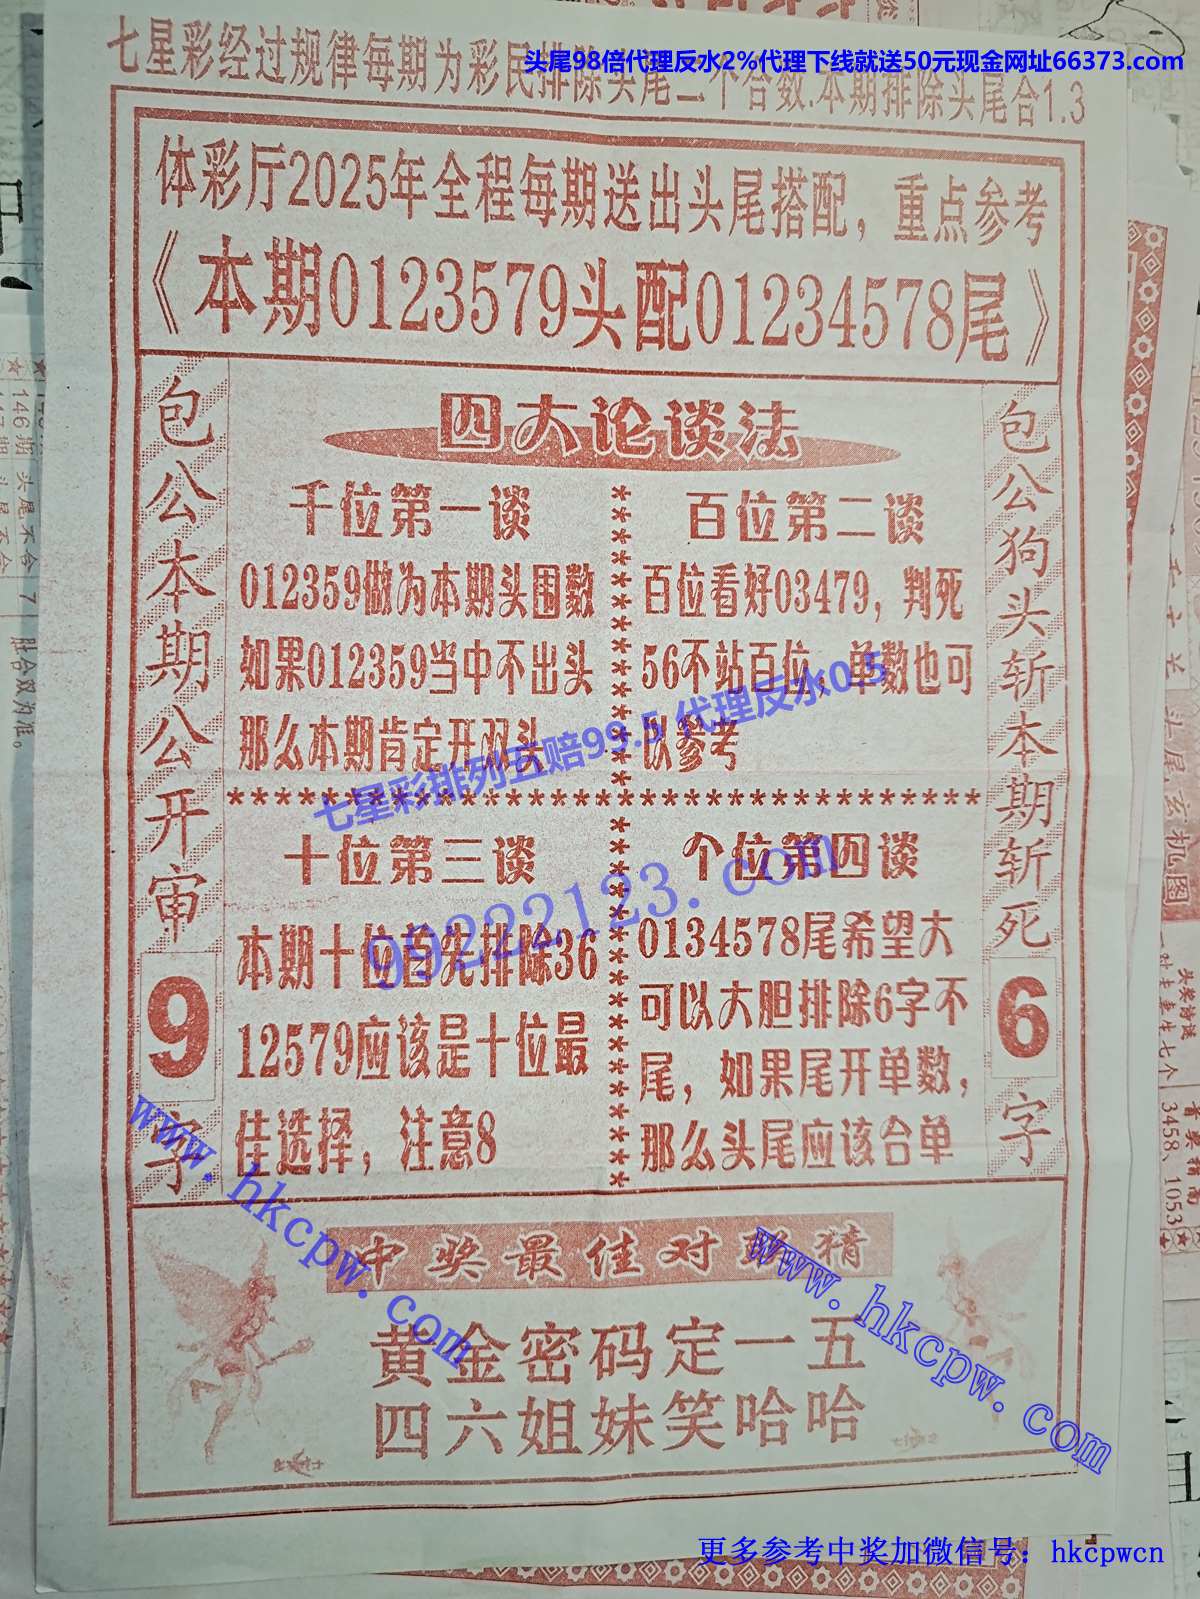 头尾98倍代理反水2%代理下线就送50元现金网址66373.com
七星彩经过规律每期为彩民排除头尾二个合数.本期排除头尾合1.3
体彩厅2025年全程每期送出头尾搭配，重点参考
《本期0123579头配01234578尾》
包公本期公开审
9
字
四大论谈法
千位第一谈
012359做为本期头围数
如果012359当中不出头
那么本期肯定开双头
百位第二谈
百位看好03479，判死
56不站百位，单数也可
以参考
七星彩排列五赔99.5 代理反水0.5
***********************************
十位第三谈
本期十位首先排除36
12579应该是十位最
佳选择，注意8
99222123.com
个位第四谈
0134578尾希望大
可以大胆排除6字不
尾，如果尾开单数，
那么头尾应该合单
包公狗头斩本期斩死
6
字
www.hkcpw.com
www.hkcpw.com
中奖最佳对 猜
黄金密码定一五
四六姐妹笑哈哈
更多参考中奖加微信号：hkcpwcn
146期 头尾不合 7
胜合双为准。
头尾玄机图
3458、1053